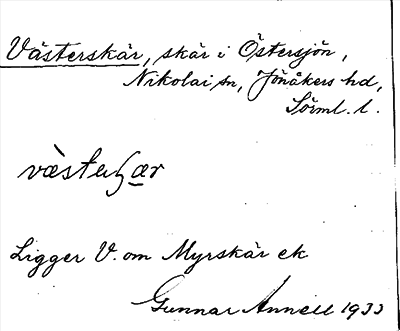 Västerskär, skär i Östersjön,
Nikolai sn, Jönåkers hd,
Sörml. l.
Ligger V. om Myrskär ek
Gunnar Annell 1933